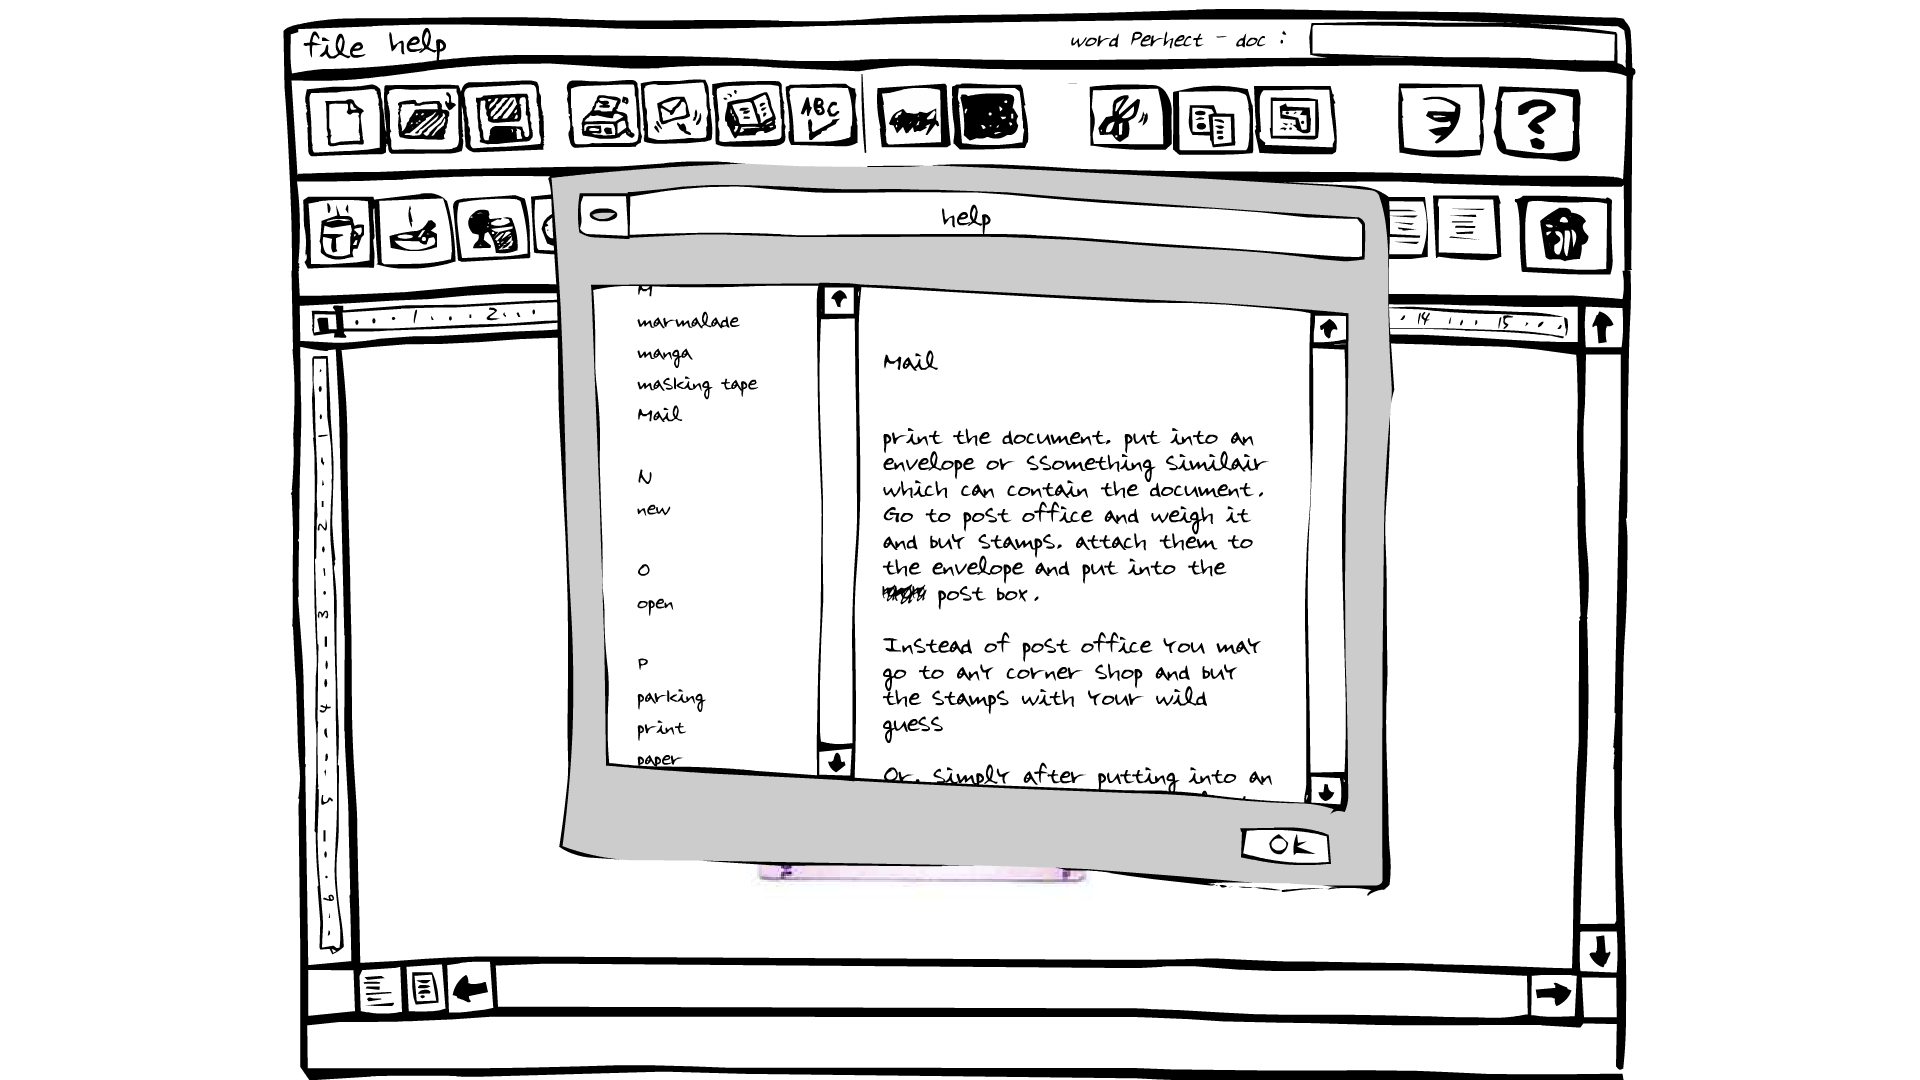 file help
word Perhect - doc :
ABC
?
T
help
1 2
14 15
M
marmalade
manga
masking tape
Mail
N
new
O
open
P
parking
print
paper
Mail
print the document. put into an
envelope or ssomething similair
which can contain the document.
Go to post office and weigh it
and buy stamps. attach them to
the envelope and put into the
post box.
Instead of post office you may
go to any corner shop and buy
the stamps with your wild
guess
Or, simply after putting into an
OK
1
2
3
4
5
6